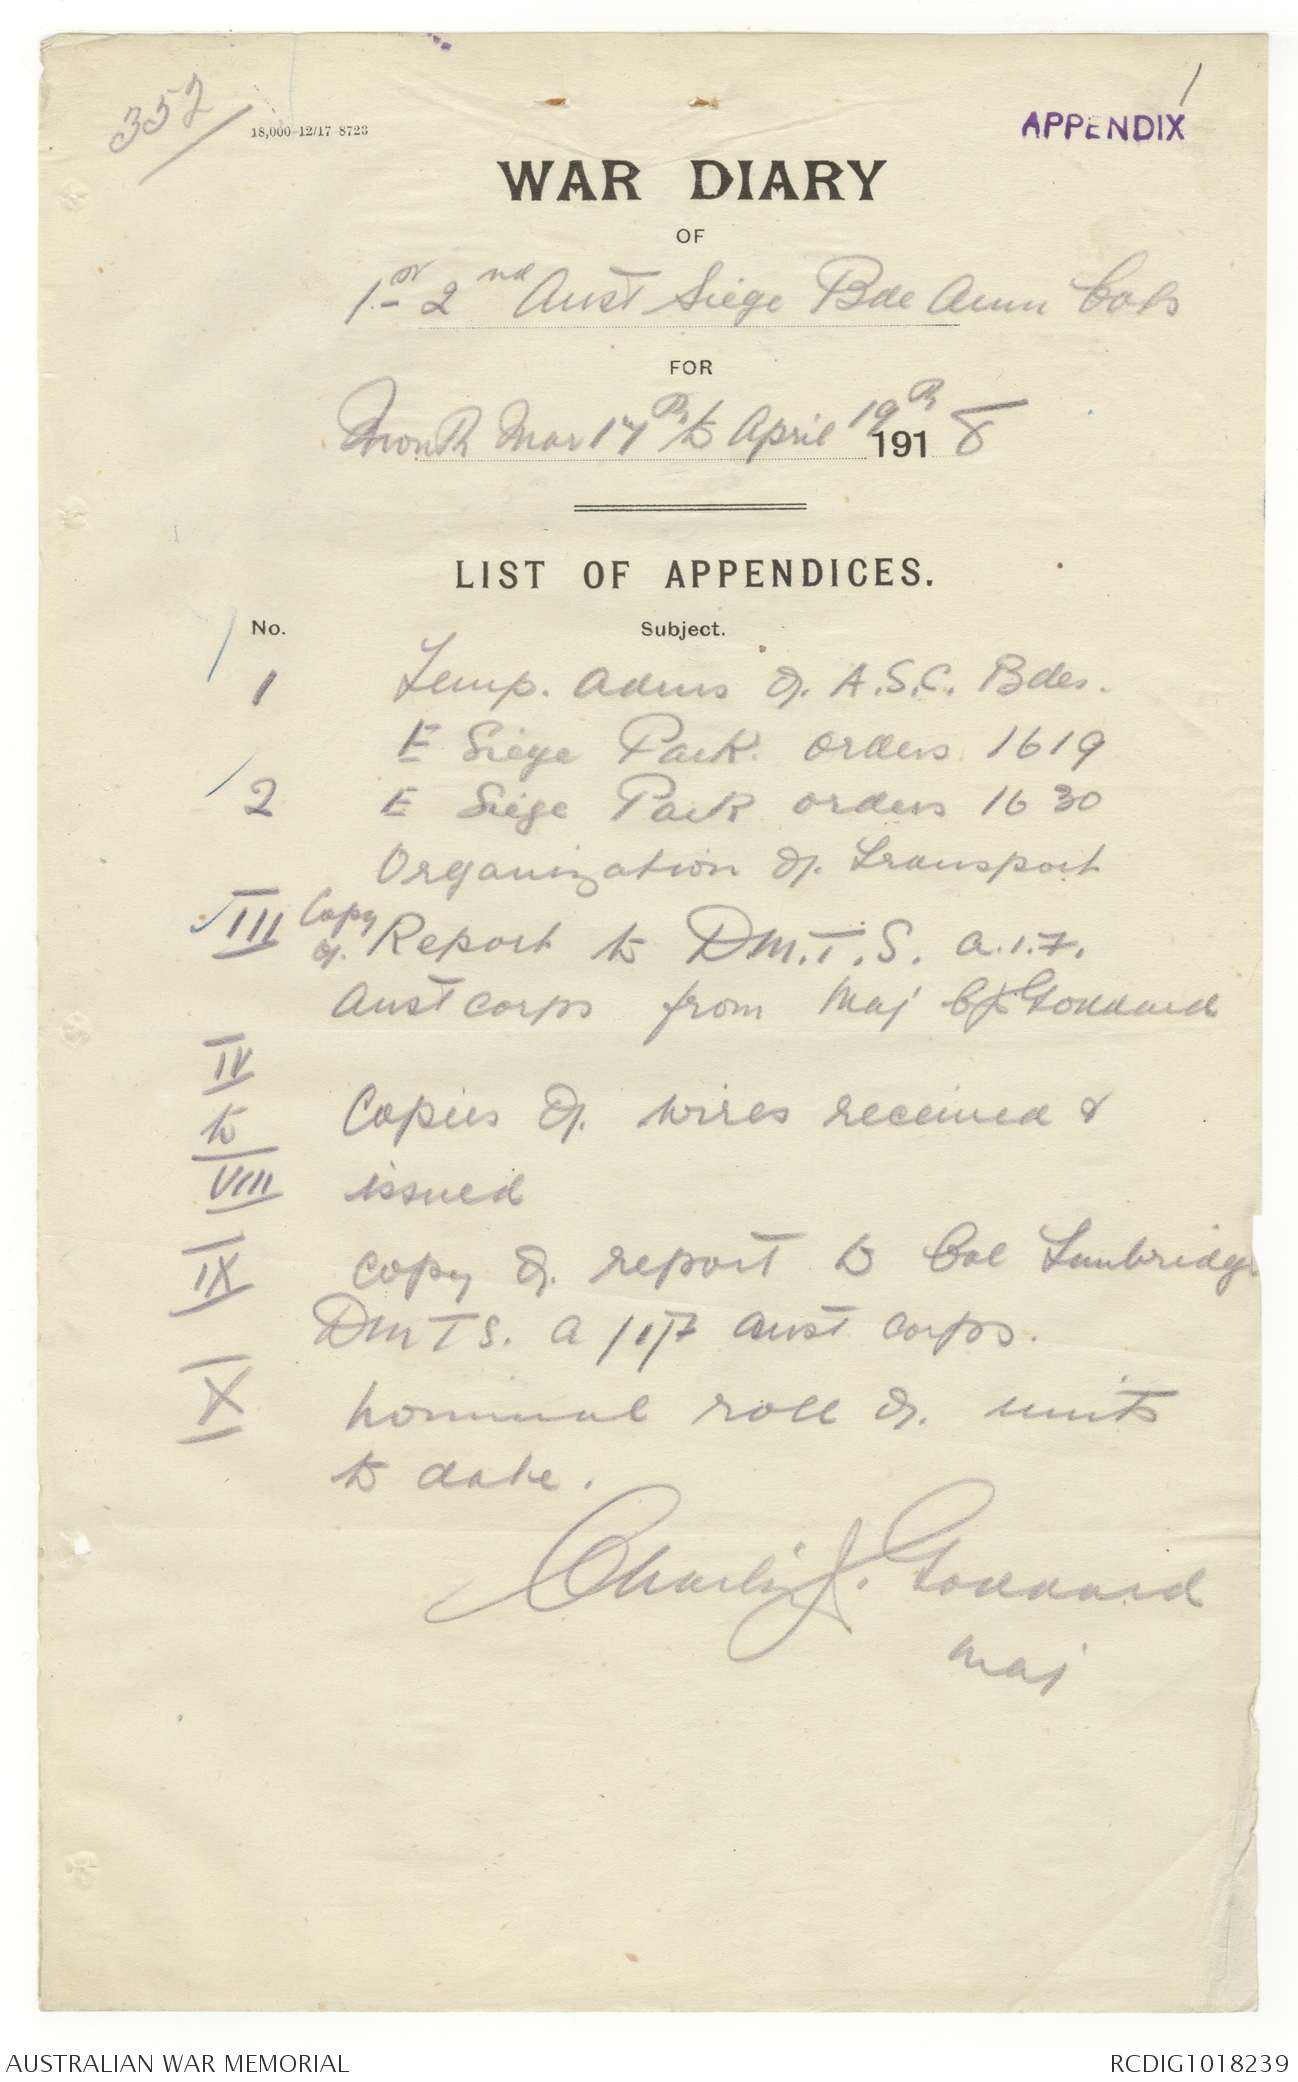 352
18,000—12/17—8723
1
APPENDIX
WAR DIARY
OF
1st & 2nd Aust Siege Bde Amm Cols
FOR
Month Mar 17th to April 19th 1918
LIST OF APPENDICES.
No. Subject.
1 Temp. Adms of. A.S.C. Bdes.
E Siege Park. Orders 1619
2 E Siege Park orders 1630
Organization of. Transport
III Copy of. Report to D.M.T.S. A.I.F.
Aust corps from Maj CJ Goddard
IV
to Copies of. wires received &
VIII issued
IX copy of. report to Col Tunbridge
DMTS. A/I/F Aust corps.
X nominal roll of. units
to date.
Charlie J. Goddard
Maj
AUSTRALIAN WAR MEMORIAL RCDIG1018239